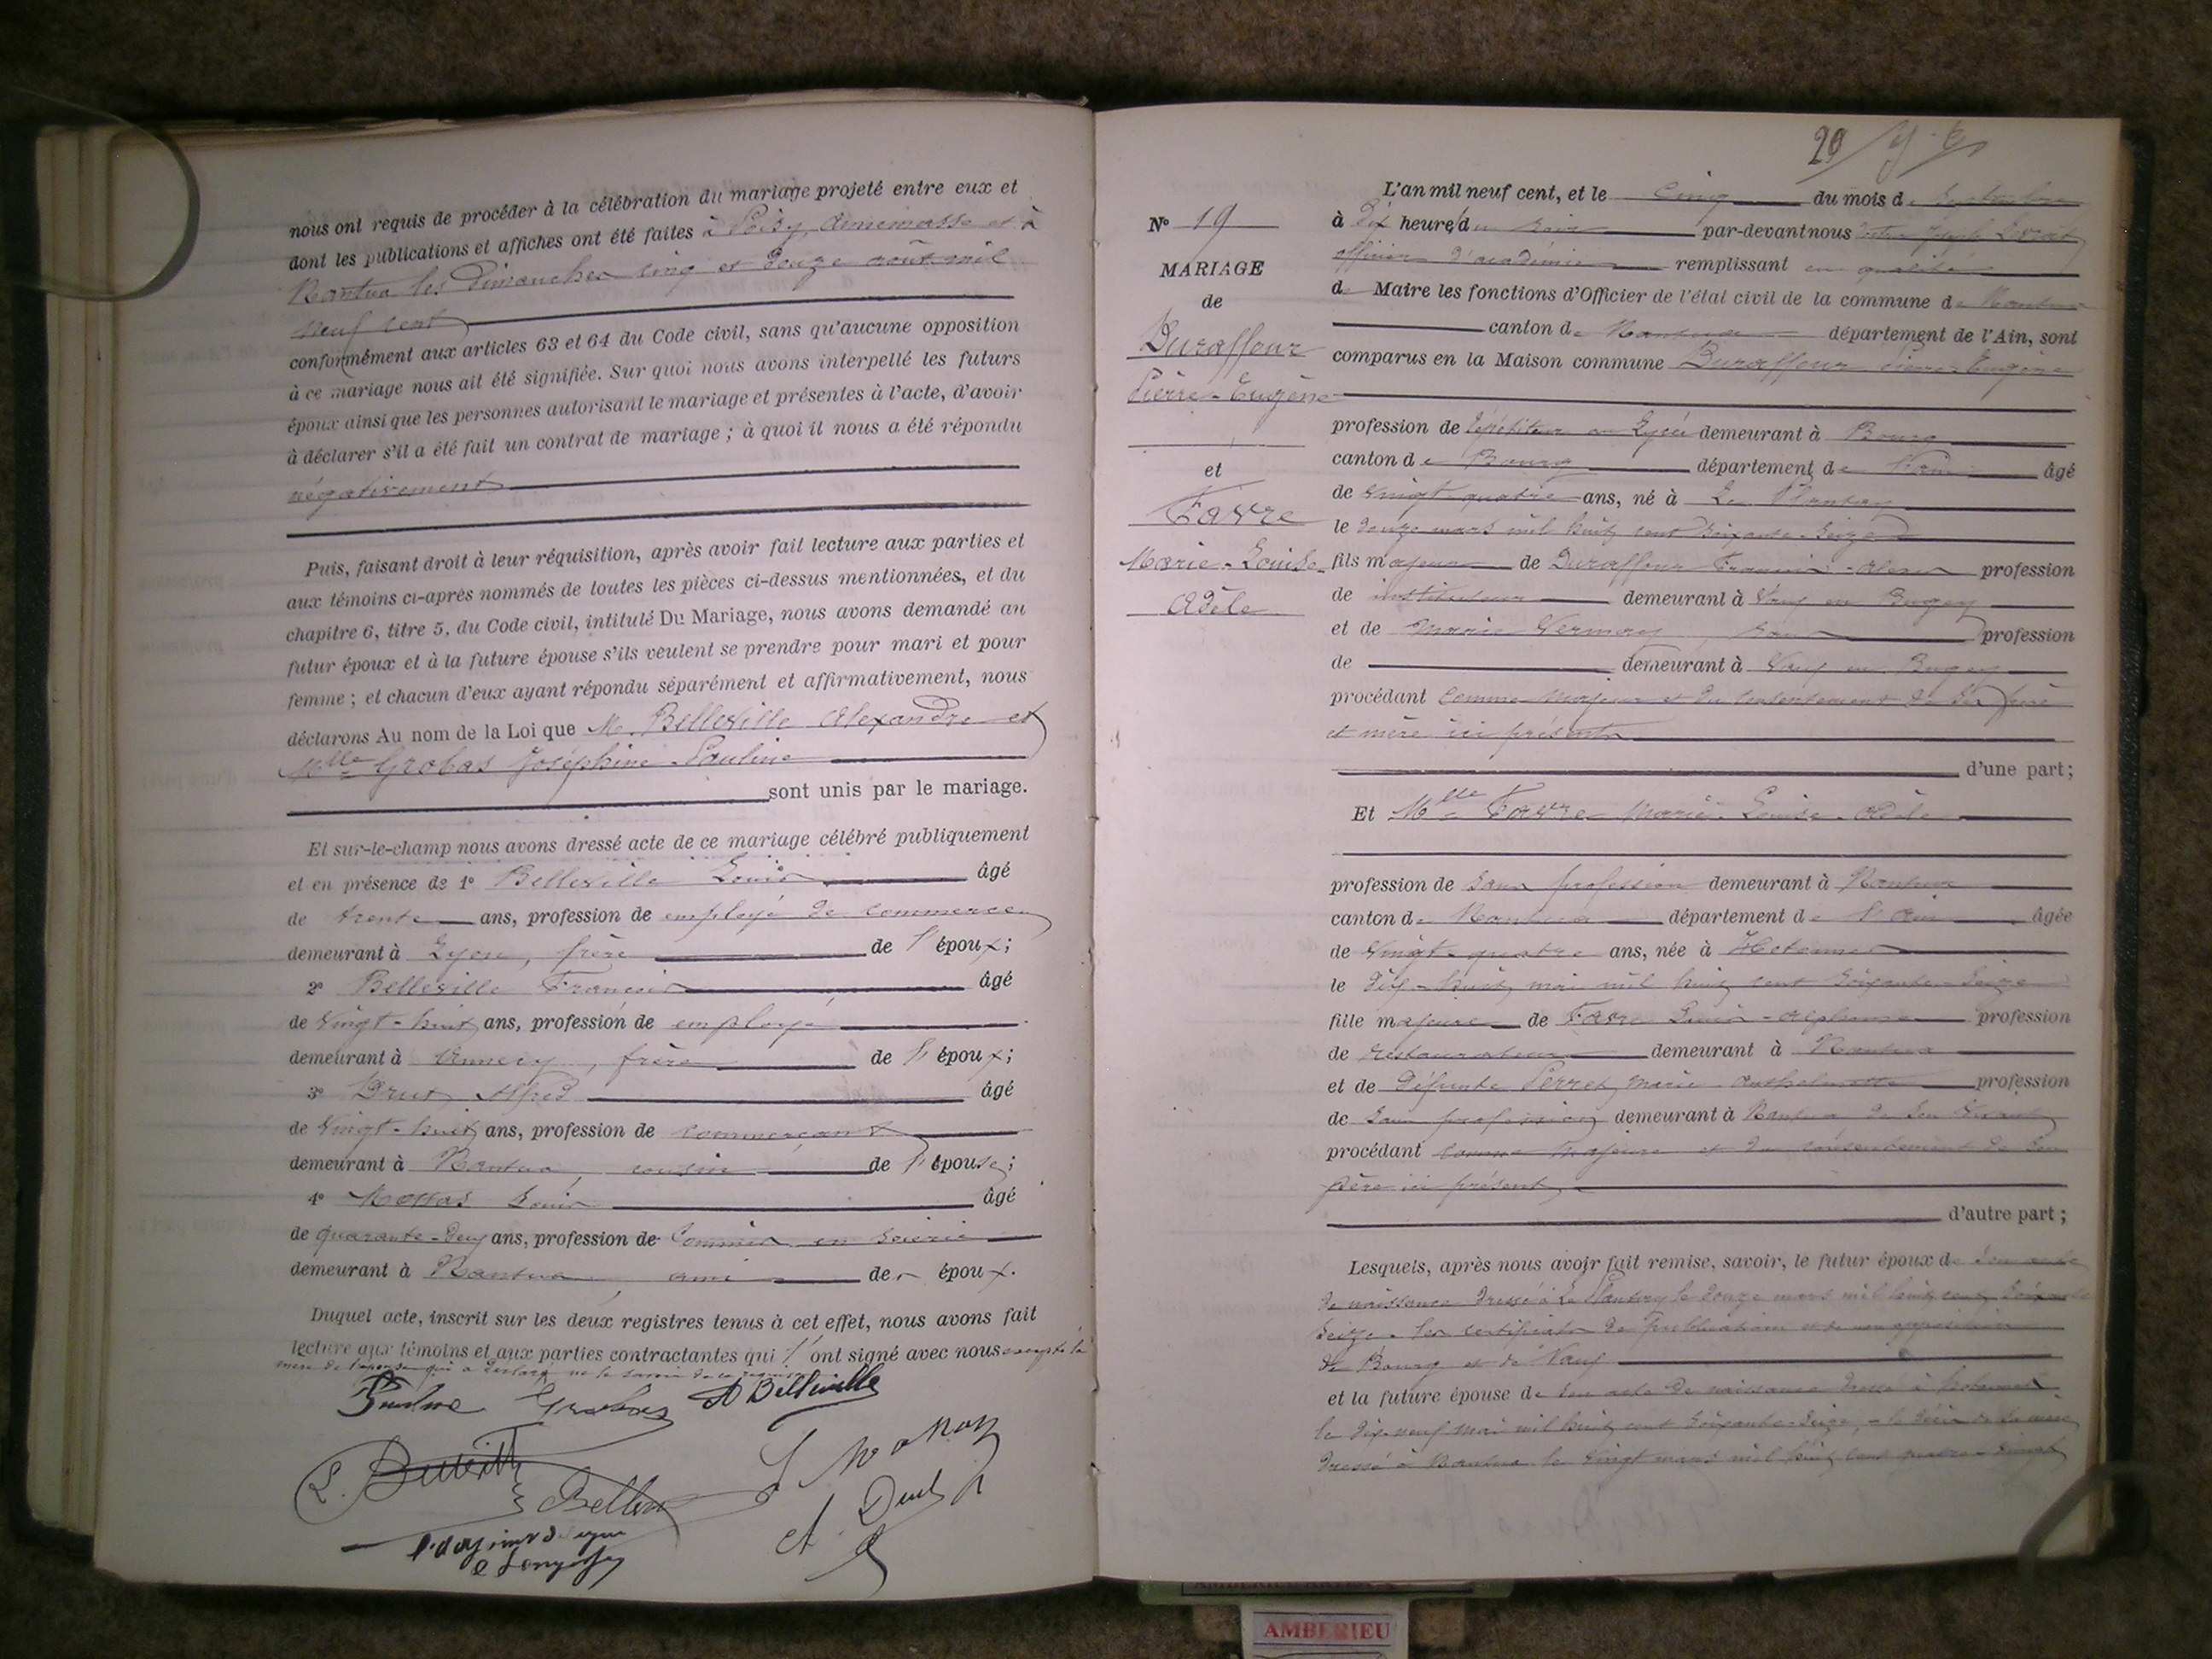 nous ont requis de procéder à la célébration du mariage projeté entre eux et
dont les publications et affiches ont été faites à Poisy, Annemasse et à
Nantua les dimanches cinq et douze août mil
neuf cent
conformément aux articles 63 et 64 du Code civil, sans qu'aucune opposition
à ce mariage nous ait été signifiée. Sur quoi nous avons interpellé les futurs
époux ainsi que les personnes autorisant le mariage et présentes à l'acte, d'avoir
à déclarer s'il a été fait un contrat de mariage ; à quoi il nous a été répondu
négativement
Puis, faisant droit à leur réquisition, après avoir fait lecture aux parties et
aux témoins ci-après nommés de toutes les pièces ci-dessus mentionnées, et du
chapitre 6, titre 5, du Code civil, intitulé Du Mariage, nous avons demandé au
futur époux et à la future épouse s'ils veulent se prendre pour mari et pour
femme ; et chacun d'eux ayant répondu séparément et affirmativement, nous
déclarons Au nom de la Loi que M. Belleville Alexandre et
Mlle Grobas Joséphine-Pauline
sont unis par le mariage.
Et sur-le-champ nous avons dressé acte de ce mariage célébré publiquement
et en présence de 1° Belleville Louis âgé
de trente ans, profession de employé de commerce
demeurant à Lyon, frère de l'époux;
2° Belleville François âgé
de vingt-huit ans, profession de employé
demeurant à Annecy, frère de l'époux;
3° Drut Alfred âgé
de vingt-huit ans, profession de commerçant
demeurant à Nantua, cousin de l'épouse;
4° Louis âgé
de quarante-deux ans, profession de Commis en soierie
demeurant à Nantua ami de époux.
Duquel acte, inscrit sur les deux registres tenus à cet effet, nous avons fait
lecture aux témoins et aux parties contractantes qui ont signé avec nous excepté la
mère de l'épouse qui a déclaré ne le savoir de ce requise
Pauline Grobas A Belleville
L. Belleville
A. Drut
20
N° 19
MARIAGE
de
Duraffour
Pierre-Eugène
et
Favre
Marie-Louise-
Adèle
L'an mil neuf cent, et le cinq du mois de septembre
à dix heures du soir par-devant nous
officier d'académie remplissant en qualité
de Maire les fonctions d'Officier de l'état civil de la commune de Nantua
canton de Nantua département de l'Ain, sont
comparus en la Maison commune Duraffour Pierre-Eugène
profession de répétiteur au Lycée demeurant à Bourg
canton de Bourg département de l'Ain âgé
de vingt-quatre ans, né à Le Plantay
le douze mars mil huit cent soixante-seize
fils majeur de Duraffour profession
de instituteur demeurant à Vaux en Bugey
et de Marie Vermay profession
de demeurant à Vaux en Bugey
procédant comme majeur et du consentement de ses père
et mère ici présents
d'une part;
Et Mlle Favre Marie-Louise-Adèle
profession de sans profession demeurant à Nantua
canton de Nantua département de l'Ain âgée
de vingt-quatre ans, née à Hotonnes
le dix-huit mai mil huit cent soixante-seize
fille majeure de Favre Louis-Alphonse profession
de restaurateur demeurant à Nantua
et de défunte Perret Marie-Anthelmette profession
de sans profession demeurant à Nantua de son vivant
procédant comme majeure et du consentement de son
père ici présent
d'autre part ;
Lesquels, après nous avoir fait remise, savoir, le futur époux de son acte
de naissance dressé à Le Plantay le douze mars mil huit cent soixante
seize - les certificats de publications et de non opposition
de Bourg et de Vaux
et la future épouse de son acte de naissance dressé à Hotonnes
le dix-neuf mai mil huit cent soixante-seize, - le décès de sa mère
dressé à Nantua le vingt mars mil huit cent quatre-vingt
AMBERIEU